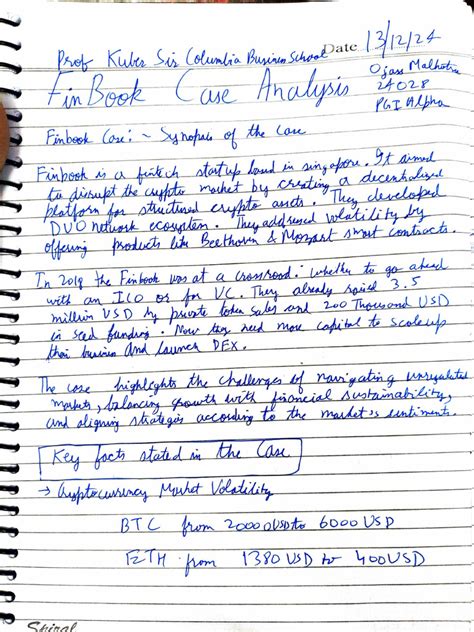 Prof Kuber Sir Columbia Business School Date 13/12/24
FinBook Case Analysis
Ojass Malhotra
24028
PGI Alpha
Finbook Case:- Synopsis of the Case
Finbook is a fintech startup based in singapore. It aimed
to disrupt the crypto market by creating a decentralized
platform for structured crypto assets. They developed
DUO network ecosystem. They addressed volatility by
offering products like Beethoven & Mozart smart contracts.
In 2018 the Finbook was at a crossroad: whether to go ahead
with an ICO or for VC. They already raised 3.5
million USD by private token sales and 200 Thousand USD
in seed funding. Now they need more capital to scaleup
their business and launch DEX.
The case highlights the challenges of navigating unregulated
markets, balancing growth with financial sustainability,
and aligning strategies according to the market's sentiments.
Key facts stated in the Case
→ Cryptocurrency Market Volatility
BTC from 20000USD to 6000 USD
ETH from 1380 USD to 400USD
Spiral